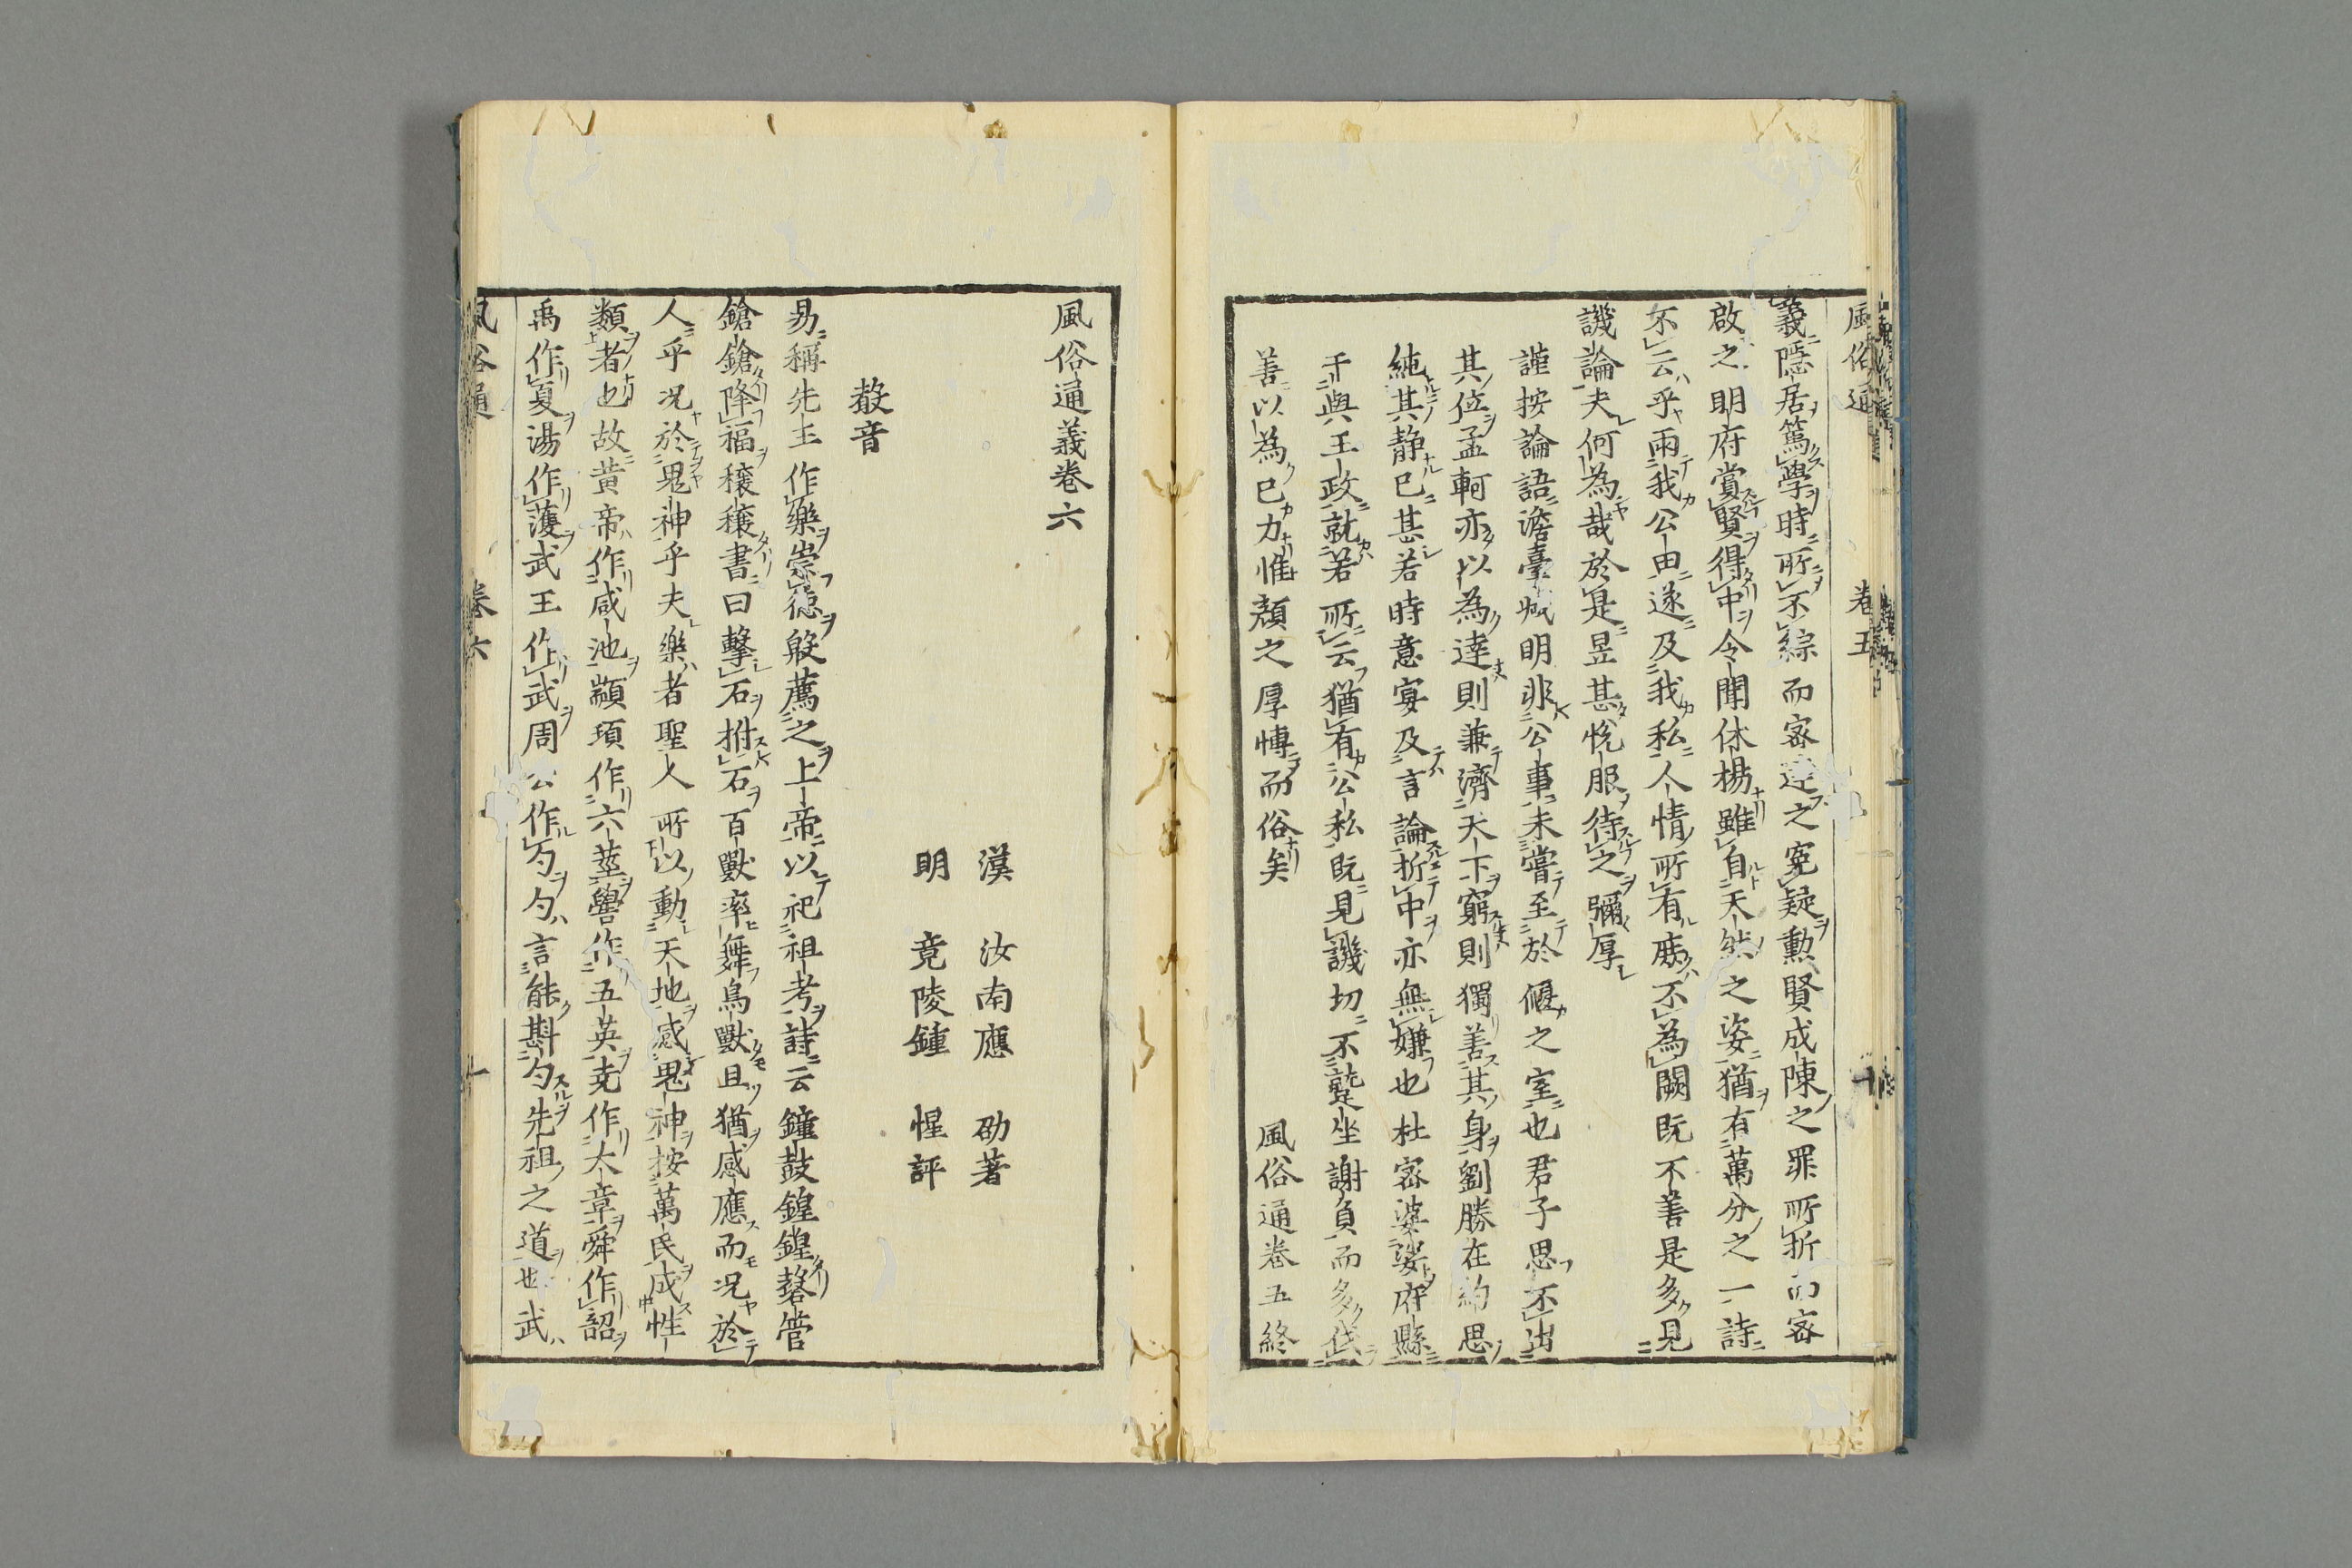 風俗通 卷五 十
義隱居篤學時所不綜而密達之寃疑勲賢成陳之罪所折而密
啟之明府賞賢得中令聞休楊雖自天然之姿猶有萬分之一詩
不云乎雨我公田遂及我私人情所有庶不為闕既不善是多見
譏論夫何為哉於是昱甚悅服待之彌厚
謹按論語澹臺滅明非公事未嘗至於偃之室也君子思不出
其位孟軻亦以為達則兼濟天下窮則獨善其身劉勝在約思
純其靜已甚若時意宴及言論折中亦無嫌也杜密婆娑府縣
干與王政就若所云猶有公私既見譏切不蹵坐謝負而多伐
善以為己力惟顏之厚博而俗矣
風俗通卷五終
風俗通義卷六
漢 汝南應 劭著
明 竟陵鍾 惺評
聲音
易稱先王作樂崇德殷薦之上帝以祀祖考詩云鐘鼓鍠鍠磬管
鎗鎗降福穰穰書曰擊石拊石百獸率舞鳥獸且猶感應而況於
人乎況於鬼神乎夫樂者聖人所以動天地感鬼神按萬民成性
類者也故黃帝作咸池顓頊作六莖嚳作五英堯作大章舜作韶
禹作夏湯作護武王作武周公作勺勺言能斟勺先祖之道也武
風俗通 卷六 一